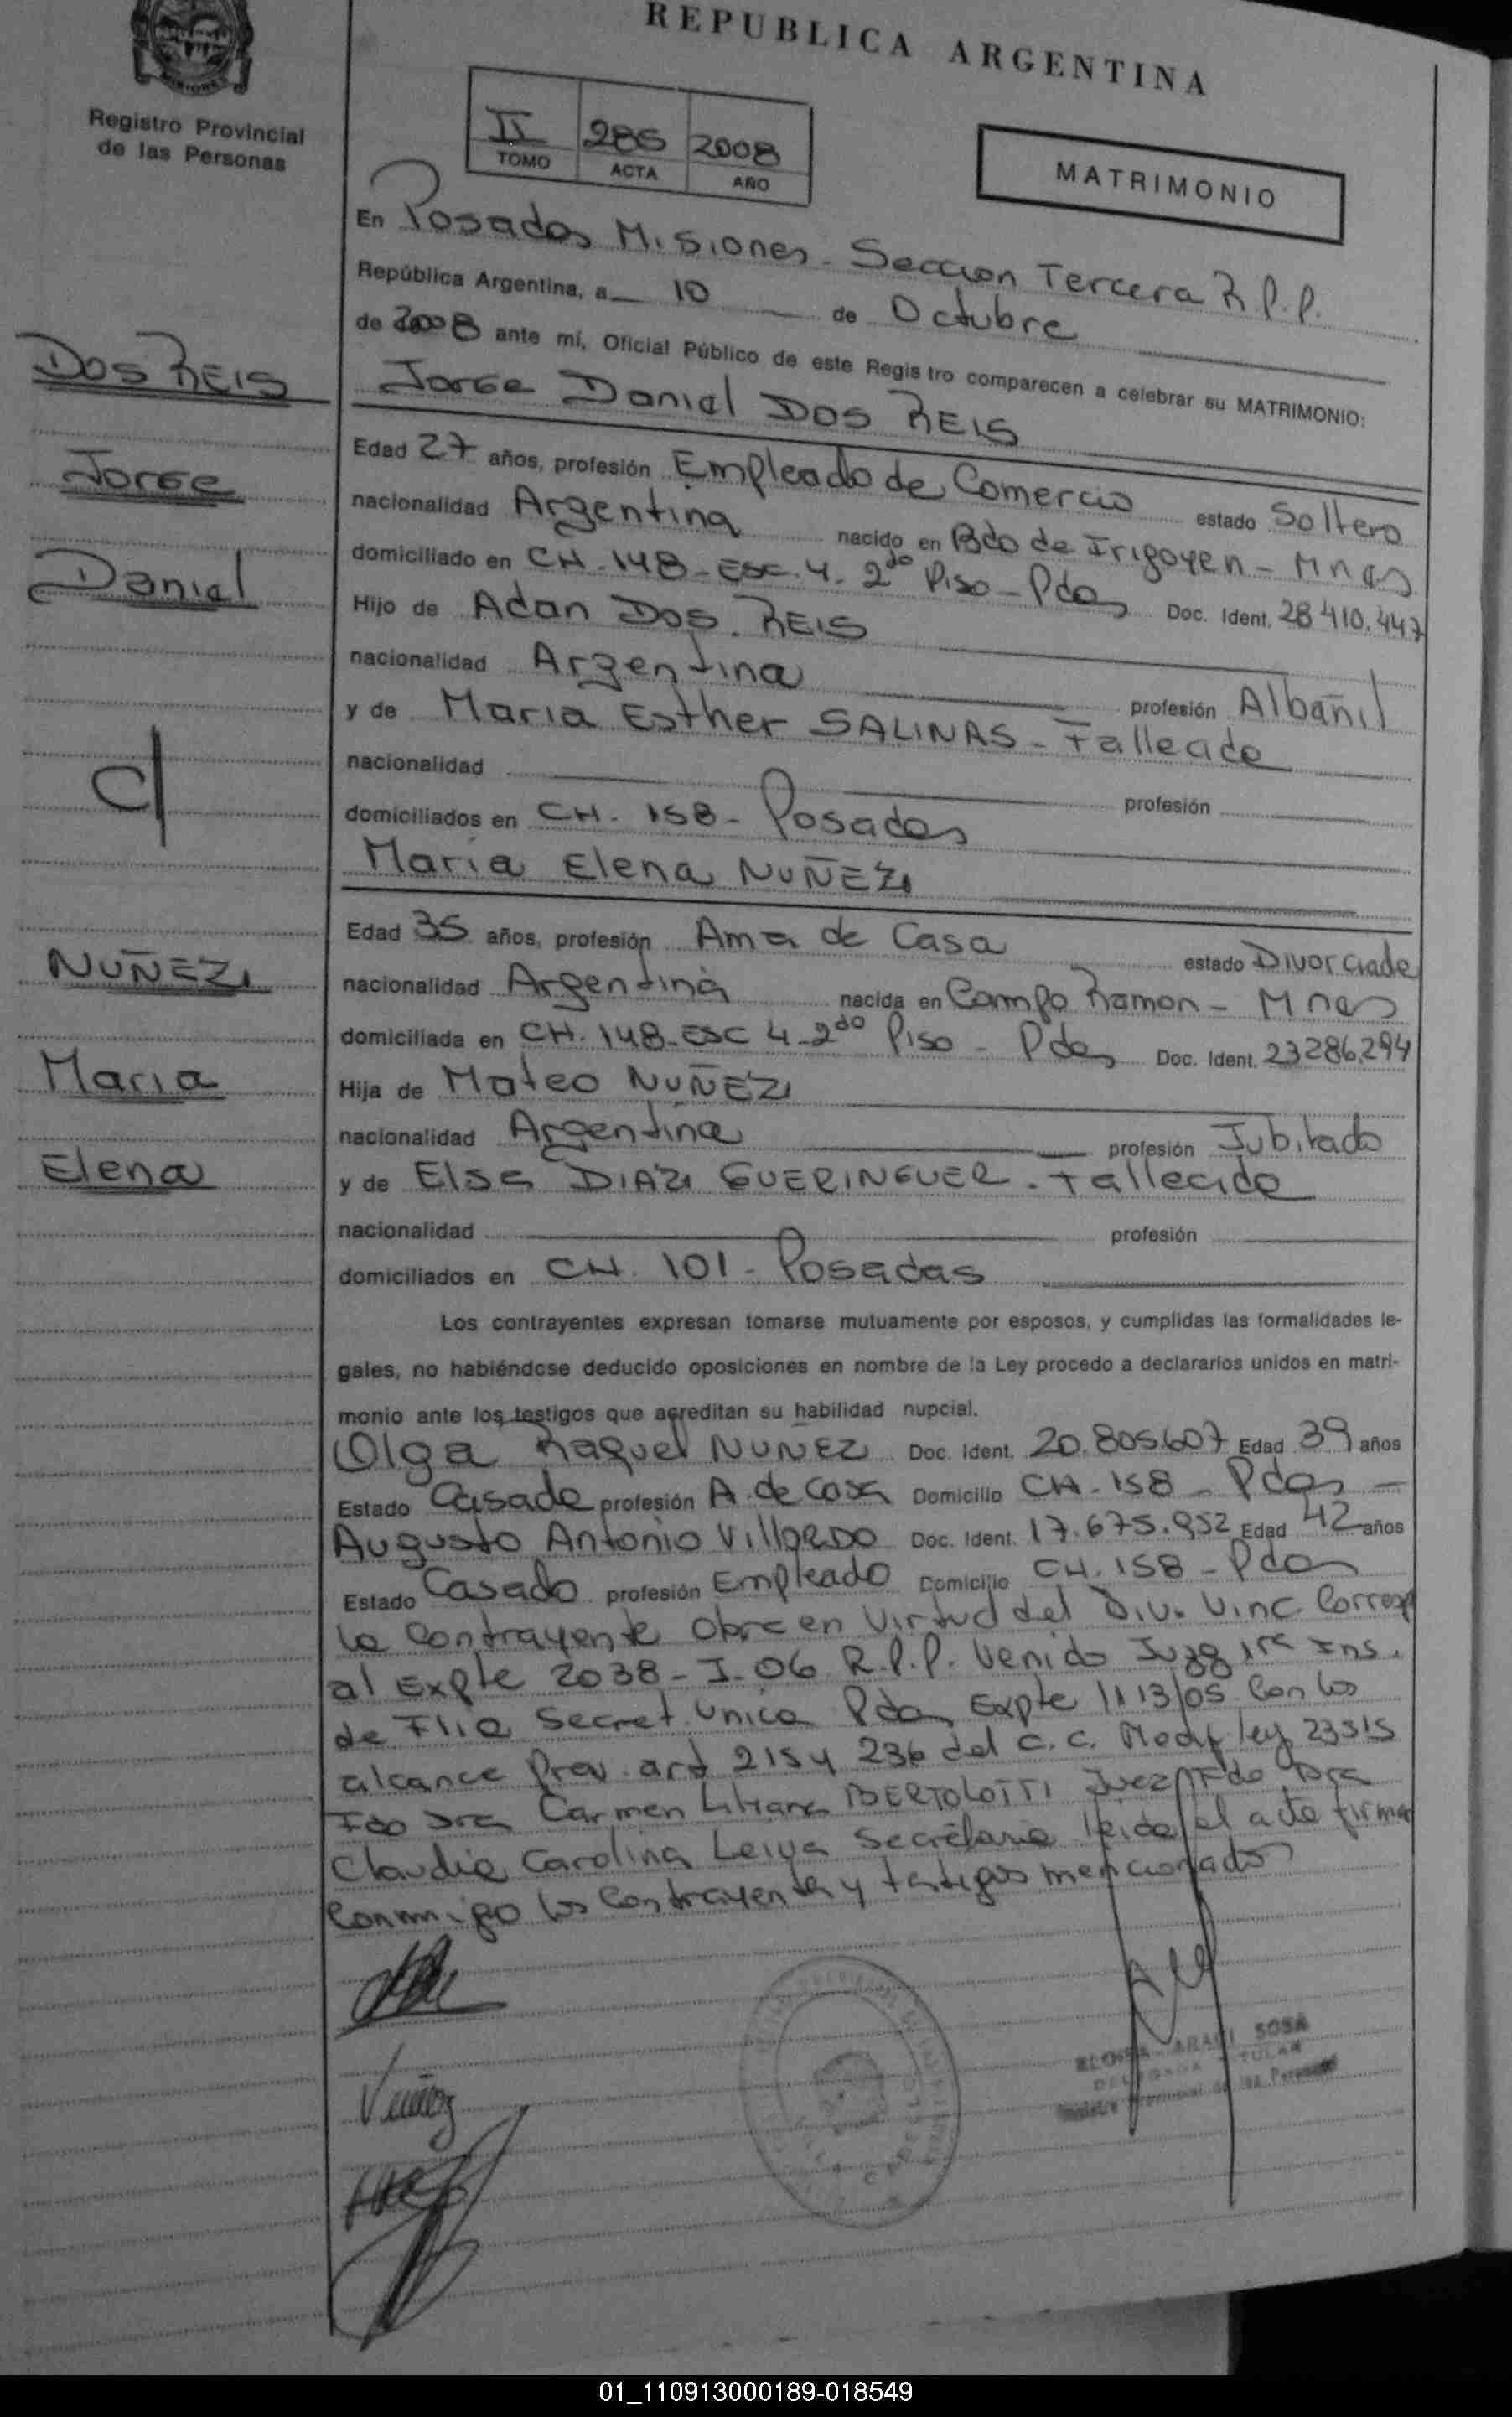 REPUBLICA ARGENTINA
Registro Provincial
de las Personas
II 285 2008
TOMO ACTA AÑO
MATRIMONIO
En Posadas Misiones - Seccion Tercera R.P.P.
República Argentina, a 10 de Octubre
de 2008 ante mí, Oficial Público de este Registro comparecen a celebrar su MATRIMONIO:
DOS REIS
Jorge
Daniel
c/
NUÑEZ
Maria
Elena
Jorge Daniel DOS REIS
Edad 27 años, profesión Empleado de Comercio estado Soltero
nacionalidad Argentina nacido en Bdo de Irigoyen - Mnes
domiciliado en CH. 148 - Esc. 4 - 2do Piso - Pdas Doc. Ident. 28.410.447
Hijo de Adan DOS REIS
nacionalidad Argentina profesión Albañil
y de Maria Esther SALINAS - Fallecida
nacionalidad profesión
domiciliados en CH. 158 - Posadas
Maria Elena NUÑEZ
Edad 35 años, profesión Ama de Casa estado Divorciada
nacionalidad Argentina nacida en Campo Ramon - Mnes
domiciliada en CH. 148 - ESC 4 - 2do Piso - Pdas Doc. Ident. 23286.294
Hija de Mateo NUÑEZ
nacionalidad Argentina profesión Jubilado
y de Elsa DIAZ GUERINGUER - Fallecida
nacionalidad profesión
domiciliados en CH. 101 - Posadas
Los contrayentes expresan tomarse mutuamente por esposos, y cumplidas las formalidades le-
gales, no habiéndose deducido oposiciones en nombre de la Ley procedo a declararlos unidos en matri-
monio ante los testigos que acreditan su habilidad nupcial.
Olga Raquel NUÑEZ Doc. Ident. 20.805.607 Edad 39 años
Estado Casada profesión A. de Casa Domicilio CH. 158 - Pdas -
Augusto Antonio Villordo Doc. Ident. 17.675.952 Edad 42 años
Estado Casado profesión Empleado Domicilio CH. 158 - Pdas
La Contrayente obra en virtud del Div. Vinc. Corresp
al Expte 2038 - I - 06 R.P.P. Venido Juzg 1ra Ins.
de Flia Secret. Unica Pdas Expte 1113/05 Con los
alcance Prev. art 215 y 236 del C.C. Modif ley 23515
Fdo Dra Carmen Liliana BERTOLOTTI Juez Fdo Dra
Claudia Carolina Leiva Secretaria leida el acta firman
Conmigo los Contrayentes y testigos mencionados
Nuñez
ELOISA ARACI SOSA
DELEGADA TITULAR
Registro Provincial de las Personas
01_110913000189-018549